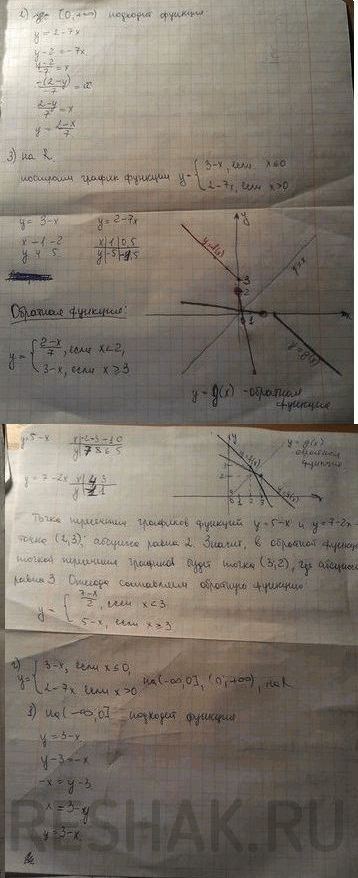 2) (0;+∞) подходит функция
y = 2-7x
y-2 = -7x
y-2/-7 = x
-(2-y)/-7 = x
2-y/7 = x
y = 2-x/7
3) на R
построим график функции y = { 3-x, если x≤0
2-7x, если x>0
y = 3-x y = 2-7x
x -1 -2 x 1 0,5
y 4 5 y -5 -1,5
y=f(x) y=x
y
3
2
1
x
y=g(x)
Обратная функция:
y = { 2-x/7, если x<2,
3-x, если x≥3
y = g(x) - обратная
функция
y=5-x x -2 -3 -1 0
y 7 8 6 5
y = g(x)
обратная
функция
y = 7-2x x 4 3
Точка пересечения графиков функций y=5-x и y=7-2x
точка (2,3), абсцисса равна 2. Значит, в обратной функции
точкой пересечения графиков будет точка (3;2), где абсцисса
равна 3. Отсюда составляем обратную функцию
y = { 7-x/2, если x<3
5-x, если x≥3
2)
y = { 3-x, если x≤0,
2-7x если x>0 на (-∞,0], (0;+∞), на R
1) на (-∞,0] подходит функция
y = 3-x
y-3 = -x
-x = y-3
x = 3-y
y = 3-x
RESHAK.RU